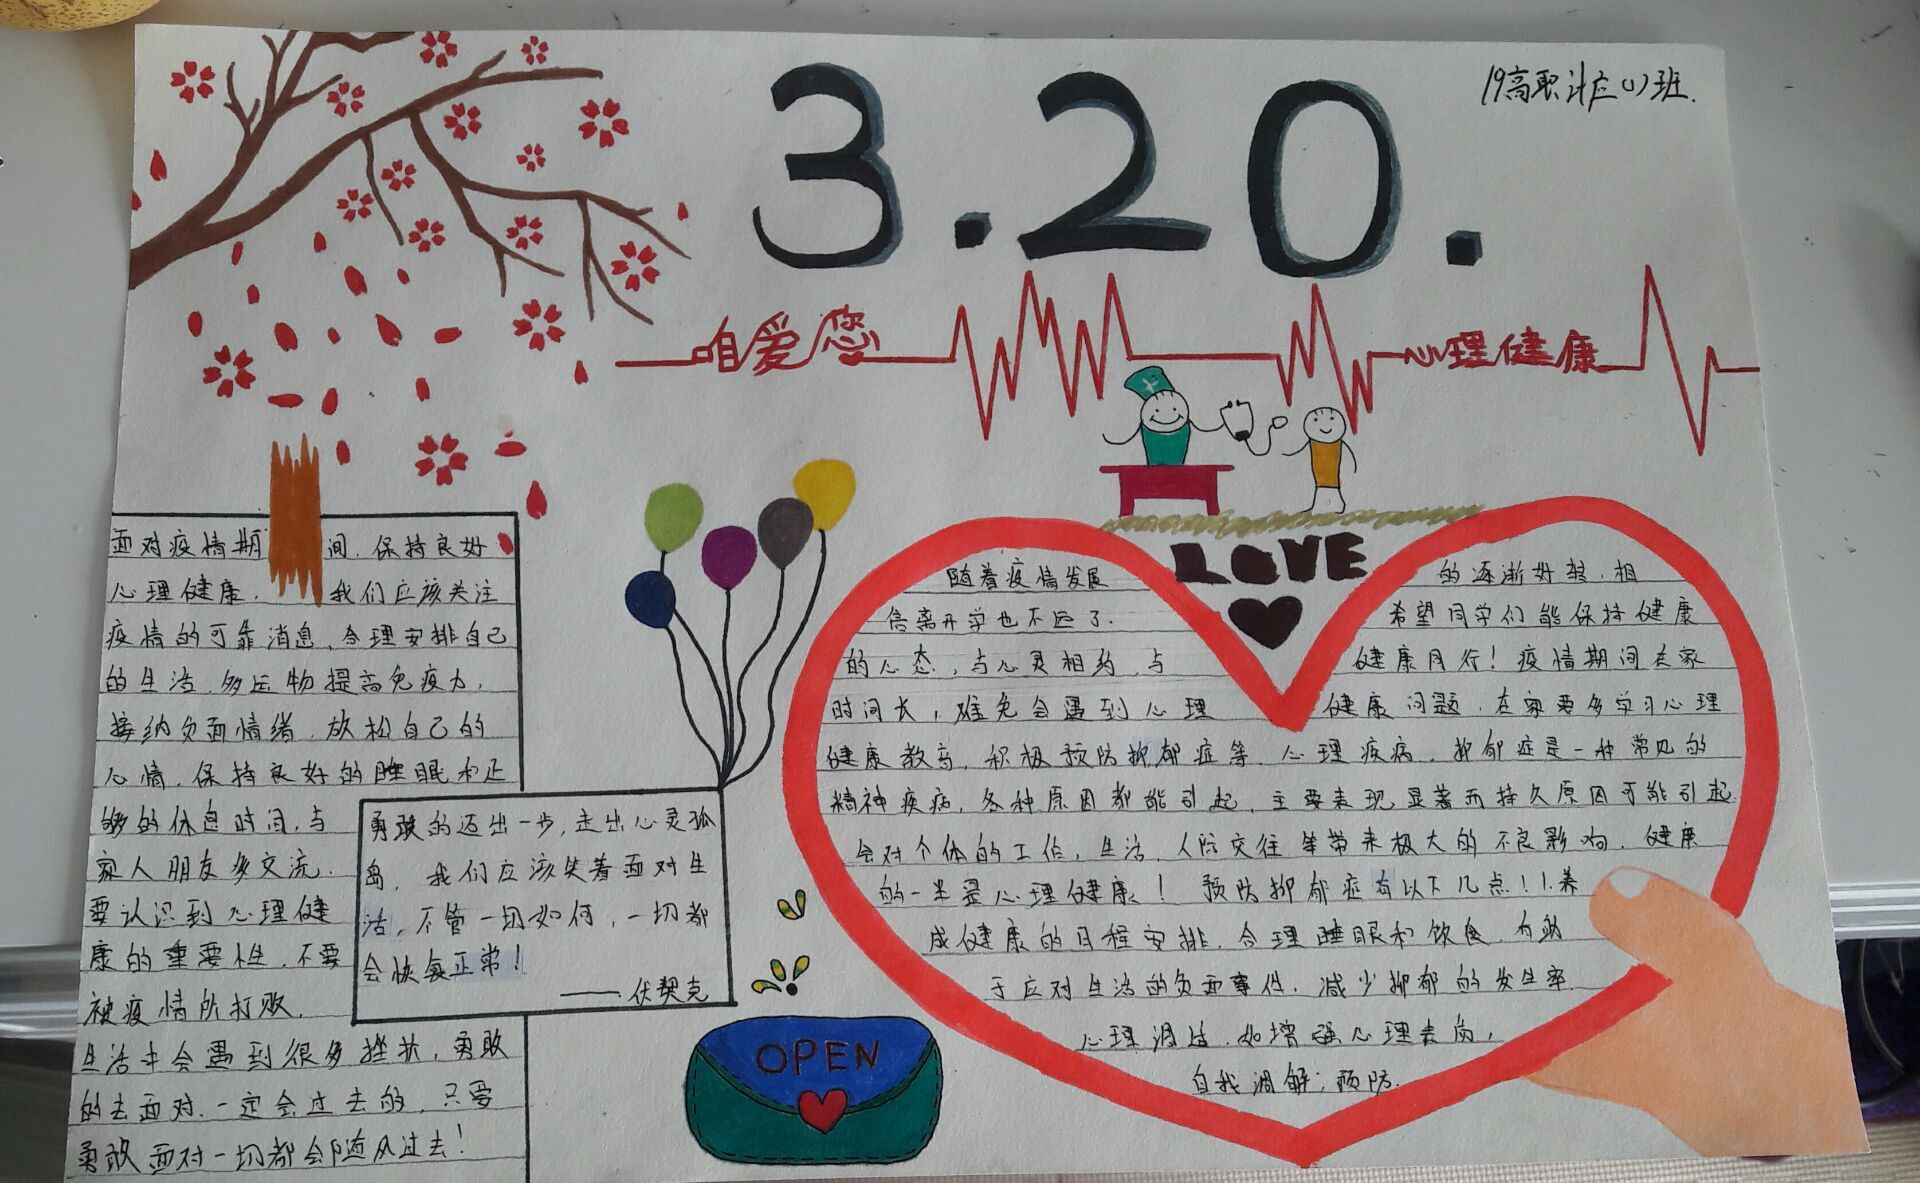 3.20.
19高职计应(1)班.
自爱您
心理健康
面对疫情期间.保持良好
心理健康.我们应该关注
疫情的可靠消息,合理安排自己
的生活.多运动提高免疫力,
接纳负面情绪.放松自己的
心情.保持良好的睡眠和足
够的休息时间,与
家人朋友多交流.
要认识到心理健
康的重要性.不要
被疫情所打败.
生活中会遇到很多挫折,勇敢
的去面对.一定会过去的.只要
勇敢面对一切都会随风过去!
勇敢的迈出一步,走出心灵孤
岛,我们应该笑着面对生
活,不管一切如何,一切都
会恢复正常!
——伏契克
OPEN
LOVE
随着疫情发展的逐渐好转,相
信离开学也不远了.希望同学们能保持健康
的心态,与心灵相约,与健康同行!疫情期间在家
时间长,难免会遇到心理健康问题.在家要多学习心理
健康教育,积极预防抑郁症等.心理疾病.抑郁症是一种常见的
精神疾病,各种原因都能引起,主要表现显著而持久原因可能引起
会对个体的工作,生活,人际交往等带来极大的不良影响.健康
的一半是心理健康!预防抑郁症有以下几点!1.养
成健康的日程安排.合理睡眠和饮食,有助
于应对生活的负面事件.减少抑郁的发生率.
心理调适.如增强心理素质,
自我调解;预防.